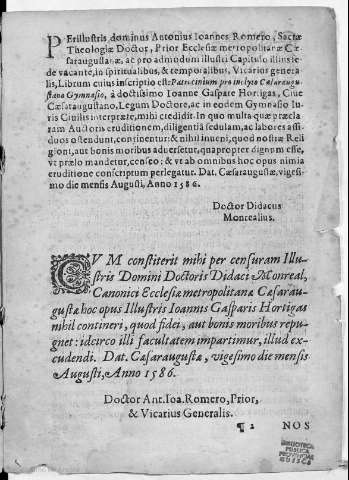 PErillustris, dominus Antonius Ioannes Romero, Sacræ
Theologiæ Doctor, Prior Ecclesiæ metropolitanæ Cæ
saraugustanæ, ac pro admodum illustri Capitulo illius se
de vacante, in spiritualibus, & temporalibus, Vicarius genera
lis, Librum cuius inscriptio est: Patrocinium pro inclyto Cæsaraugu
stano Gymnasio, à doctissimo Ioanne Gaspare Hortigas, Ciue
Cæsaraugustano, Legum Doctore, ac in eodem Gymnasio Iu
ris Ciuilis interpræte, mihi credidit. In quo multa quæ præcla
ram Auctoris eruditionem, diligentiã sedulam, ac labores assi
duos ostendunt, continentur: & nihil inueni, quod nostræ Reli
gioni, aut bonis moribus aduersetur, quapropter dignum esse,
vt prælo mandetur, censeo: & vt ab omnibus hoc opus nimia
eruditione conscriptum perlegatur. Dat. Cæsaraugustæ, vigesi
mo die mensis Augusti, Anno 1586.
Doctor Didacus
Monrealius.
CVM constiterit mihi per censuram Illu-
stris Domini Doctoris Didaci Monreal,
Canonici Ecclesiæ metropolitanæ Cæsarau-
gustæ hoc opus Illustris Ioannis Gasparis Hortigas
nihil contineri, quod fidei, aut bonis moribus repu-
gnet: idcirco illi facultatem impartimur, illud ex-
cudendi. Dat. Cæsaraugustæ, vigesimo die mensis
Augusti, Anno 1586.
Doctor Ant. Ioa. Romero, Prior,
& Vicarius Generalis.
¶ 2 NOS
BIBLIOTECA
PUBLICA
PROVINCIAL
HUESCA